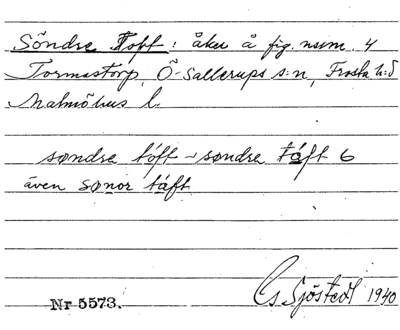 Söndre Toft : åker å fig. num. 4
Tormastorp, Ö-Sallerups s:n, Frosta h:d
Malmöhus l.
søndre tóft - søndre táft 6
även sønor táft
Nr 5573.
Sjöstedt 1940